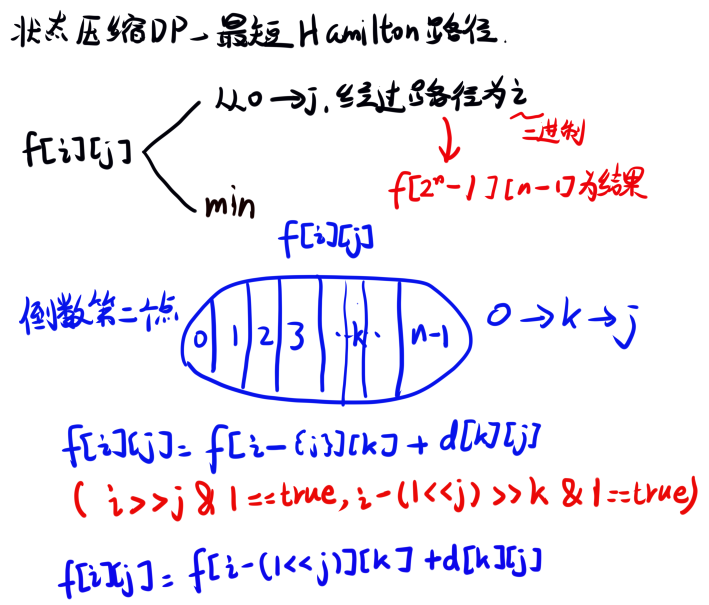 状态压缩DP - 最短Hamilton路径.
从0→j,经过路径为i
二进制
f[i][j]
f[2ⁿ-1][n-1]为结果
min
f[i][j]
倒数第二个点
0 1 2 3 ··k· n-1
0→k→j
f[i][j]= f[i-{j}][k]+d[k][j]
( i>>j & 1==true, i-(1<<j) >>k & 1==true)
f[i][j]= f[i-(1<<j)][k] +d[k][j]